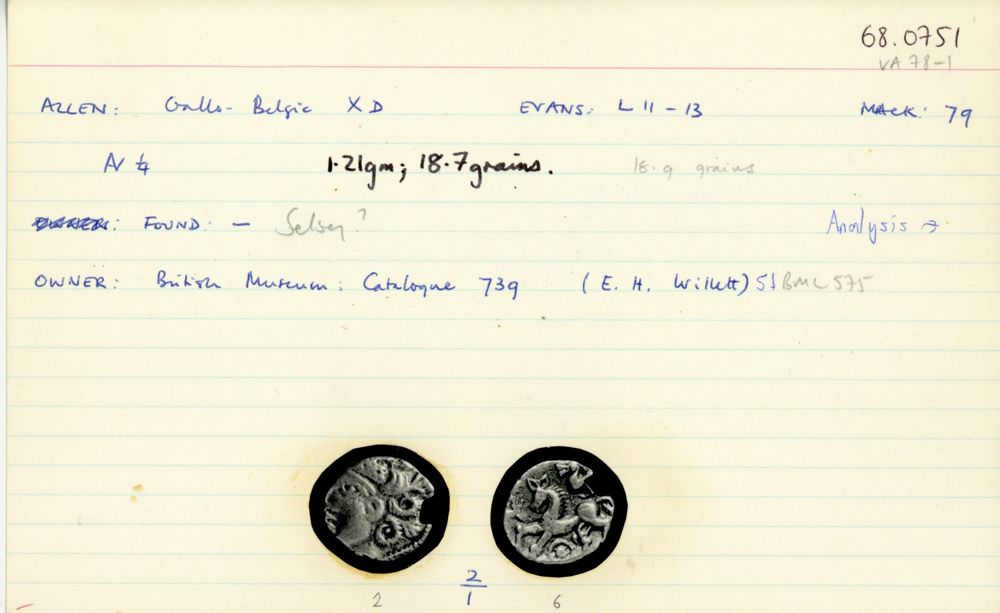 68.0751
VA 78-1
ALLEN: Gallo-Belgic XD EVANS: L 11-13 MACK: 79
AV ¼ 1.21gm; 18.7grains. 18.9 grains
FOUND: — Selsey? Analysis →
OWNER: British Museum: Catalogue 739 (E. H. Willett) BMC 575
2
1
2 6